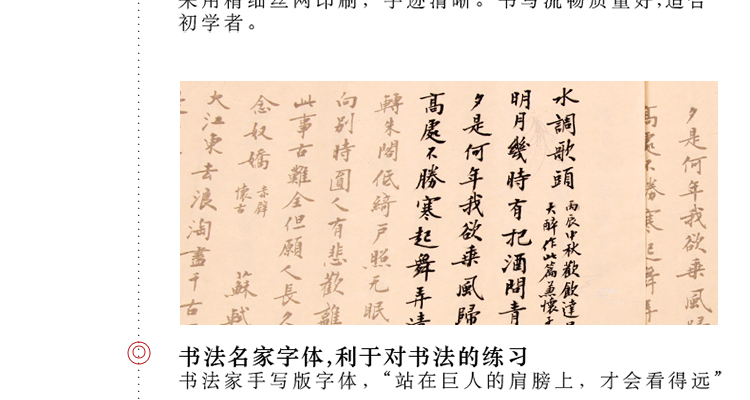 采用精细丝网印刷，字迹清晰。书写流畅质量好,适合
初学者。
夕是何年我欲乘風歸
高處不勝寒起舞弄
水調歌頭
丙辰中秋歡飲達旦
大醉作此篇兼懷子
明月幾時有把酒問青
夕是何年我欲乘風歸
高處不勝寒起舞弄清
轉朱閣低綺戶照无眠
向別時圓人有悲歡離
此事古難全但願人長久
念奴嬌
赤壁
懷古
蘇軾
大江東去浪淘盡千古
书法名家字体,利于对书法的练习
书法家手写版字体，“站在巨人的肩膀上，才会看得远”